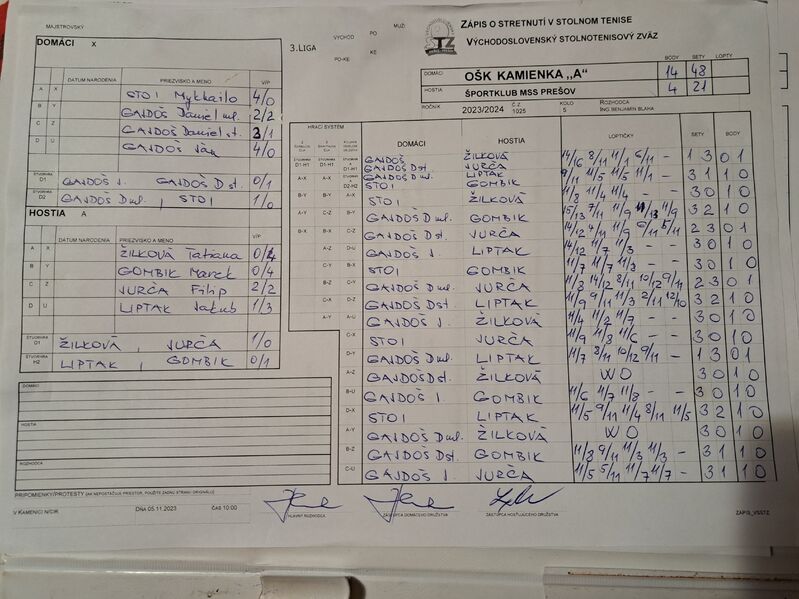 MAJSTROVSKÝ
VÝCHOD
PO
MUŽI
3.LIGA
PO-KE
KE
ZÁPIS O STRETNUTÍ V STOLNOM TENISE
VÝCHODOSLOVENSKÝ STOLNOTENISOVÝ ZVÄZ
BODY SETY LOPTY
DOMÁCI OŠK KAMIENKA „A" 14 48
HOSTIA ŠPORTKLUB MSS PREŠOV 4 21
ROČNÍK 2023/2024 Č.Z. 1025 KOLO 5 ROZHODCA ING. BENJAMIN BLAHA
DOMÁCI X
DÁTUM NARODENIA PRIEZVISKO A MENO V/P
A X STOI Mykhailo 4/0
B Y GAJDOŠ Daniel ml. 2/2
C Z GAJDOŠ Daniel st. 3/1
D U GAJDOŠ Ján 4/0
ŠTVORHRA D1 GAJDOŠ J. GAJDOŠ D st. 0/1
ŠTVORHRA D2 GAJDOŠ D ml. , STOI 1/0
HOSTIA A
DÁTUM NARODENIA PRIEZVISKO A MENO V/P
A X ŽILKOVÁ Tatiana
B Y GOMBIK Marek 0/4
C Z JURČA Filip 2/2
D U LIPTAK Jakub 1/3
ŠTVORHRA D1 ŽILKOVÁ , JURČA 1/0
ŠTVORHRA H2 LIPTAK , GOMBIK 0/1
DOMÁCI
HOSTIA
ROZHODCA
HRACÍ SYSTÉM DOMÁCI HOSTIA LOPTIČKY SETY BODY
D1-H1 D1-H1 D1-H1 GAJDOŠ ŽILKOVÁ 14/6 8/11 11/1 6/11 - 1 3 0 1
GAJDOŠ Dst. JURČA
D2-H2 GAJDOŠ D ml. LIPTAK 9/11 11/5 11/5 11/1 - 3 1 1 0
STOI GOMBIK
A-X A-X STOI ŽILKOVÁ 11/8 11/4 11/4 - - 3 0 1 0
B-Y B-Y GAJDOŠ D ml. GOMBIK 15/13 7/11 11/9 11/9 3 2 1 0
A-Y C-Z GAJDOŠ Dst. JURČA 2 3 0 1
B-X B-X D-U GAJDOŠ J. LIPTAK 14/12 11/7 11/3 - - 3 0 1 0
STOI GOMBIK 11/7 11/7 11/3 - - 3 0 1 0
GAJDOŠ D ml. JURČA 11/3 14/12 8/11 10/12 9/11 2 3 0 1
GAJDOŠ Dst. LIPTAK 11/9 9/11 11/3 2/11 12/10 3 2 1 0
A-Y A-U GAJDOŠ J. ŽILKOVÁ 11/4 11/2 11/7 - - 3 0 1 0
C-X STOI JURČA 11/9 11/3 11/6 - - 3 0 1 0
D-Y GAJDOŠ D ml. LIPTAK 11/7 8/11 10/12 9/11 - 1 3 0 1
A-Z GAJDOŠ Dst. ŽILKOVÁ WO 3 0 1 0
B-U GAJDOŠ J. GOMBIK 11/6 11/7 11/8 - - 3 0 1 0
D-X STOI LIPTAK 11/5 9/11 11/4 8/11 11/5 3 2 1 0
A-Y GAJDOŠ D ml. ŽILKOVÁ WO 3 0 1 0
B-Z GAJDOŠ Dst. GOMBIK 11/8 9/11 11/3 11/3 - 3 1 1 0
C-U GAJDOŠ J. JURČA 11/5 5/11 11/7 11/7 - 3 1 1 0
PRIPOMIENKY/PROTESTY (AK NEPOSTAČUJE PRIESTOR, POUŽITE ZADNÚ STRANU ORIGINÁLU)
V KAMENICI N/CIR. DŇA 05.11.2023 ČAS 10:00 HLAVNÝ ROZHODCA ZÁSTUPCA DOMÁCEHO DRUŽSTVA ZÁSTUPCA HOSŤUJÚCEHO DRUŽSTVA ZÁPIS_VSSTZ